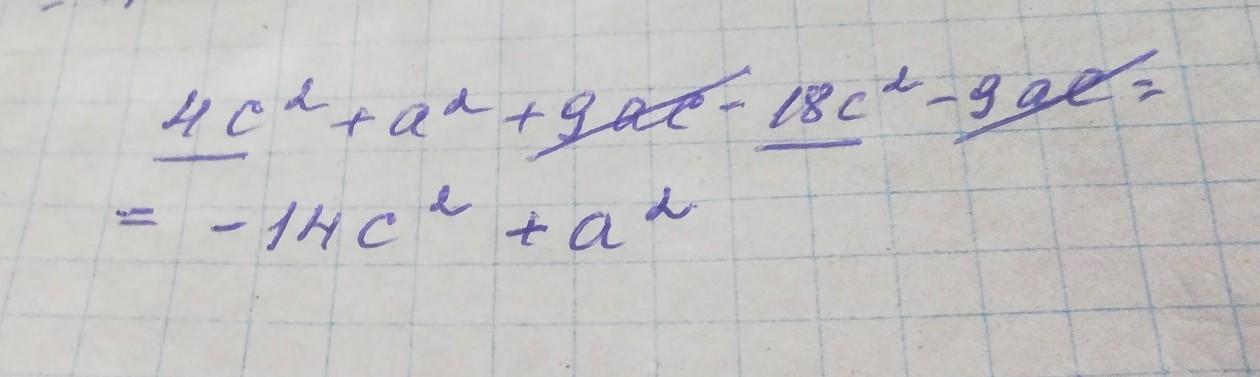 4c² + a² + 9ac - 18c² - 9ac =
= -14c² + a²